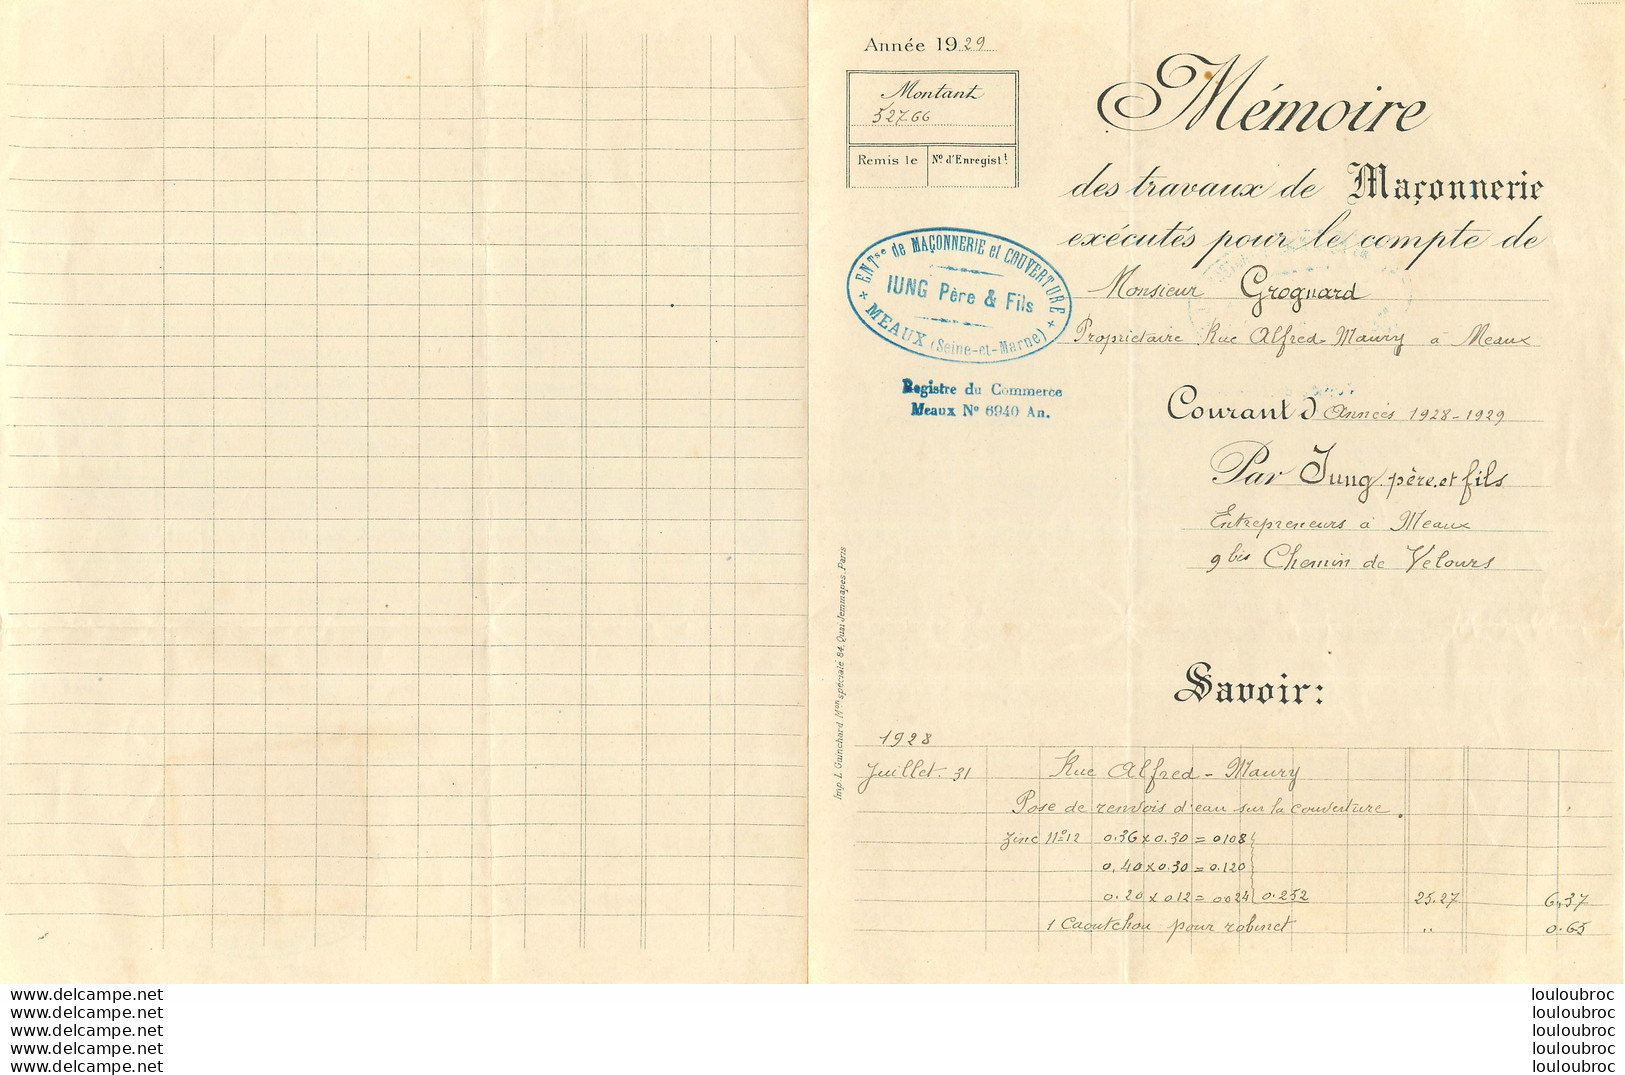 Année 1929
Montant
52766
Remis le
No. d'Enregist.t
Mémoire
des travaux de Maçonnerie
exécutés pour le compte de
Monsieur Grognard
Propriétaire Rue Alfred-Maury à Meaux
ENTse de MAÇONNERIE et COUVERTURE
IUNG Père & Fils
MEAUX (Seine-et-Marne)
Registre du Commerce
Meaux No 6940 An.
Courant d Années 1928-1929
Par Jung père et fils
Entrepreneurs à Meaux
9 bis Chemin de Velours
Imp. L. Guinchard Mon spéciale 84, Quai Jemmapes, Paris
Savoir:
1928
Juillet. 31 Rue Alfred-Maury
Pose de renvois d'eau sur la couverture.
Zinc No 12 0.36 x 0.30 = 0108
0,40 x 0.30 = 0.120
0.20 x 012 = 0024 0.252 25.27 6,37
1 Caoutchou pour robinet " 0.65
www.delcampe.net louloubroc
www.delcampe.net louloubroc
www.delcampe.net louloubroc
www.delcampe.net louloubroc
www.delcampe.net louloubroc